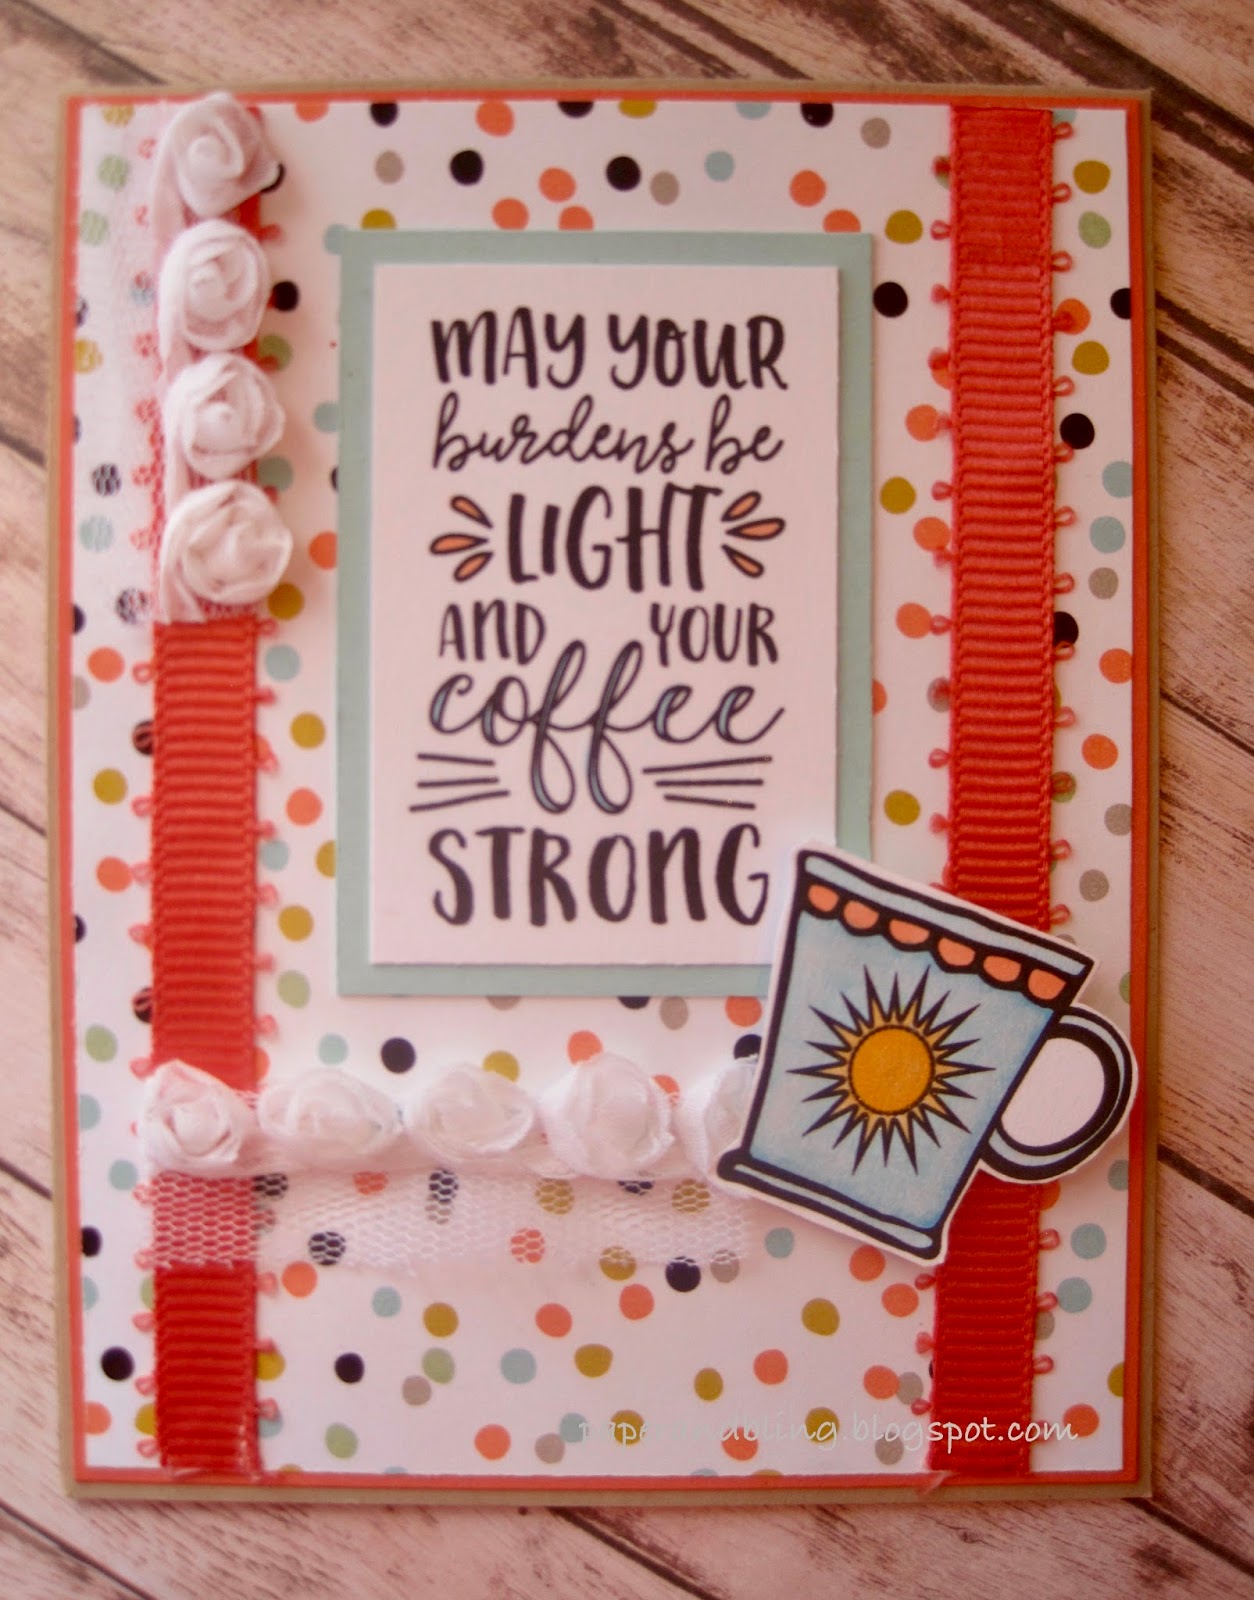 MAY YOUR
burdens be
LIGHT
AND YOUR
coffee
STRONG
paperandbling.blogspot.com